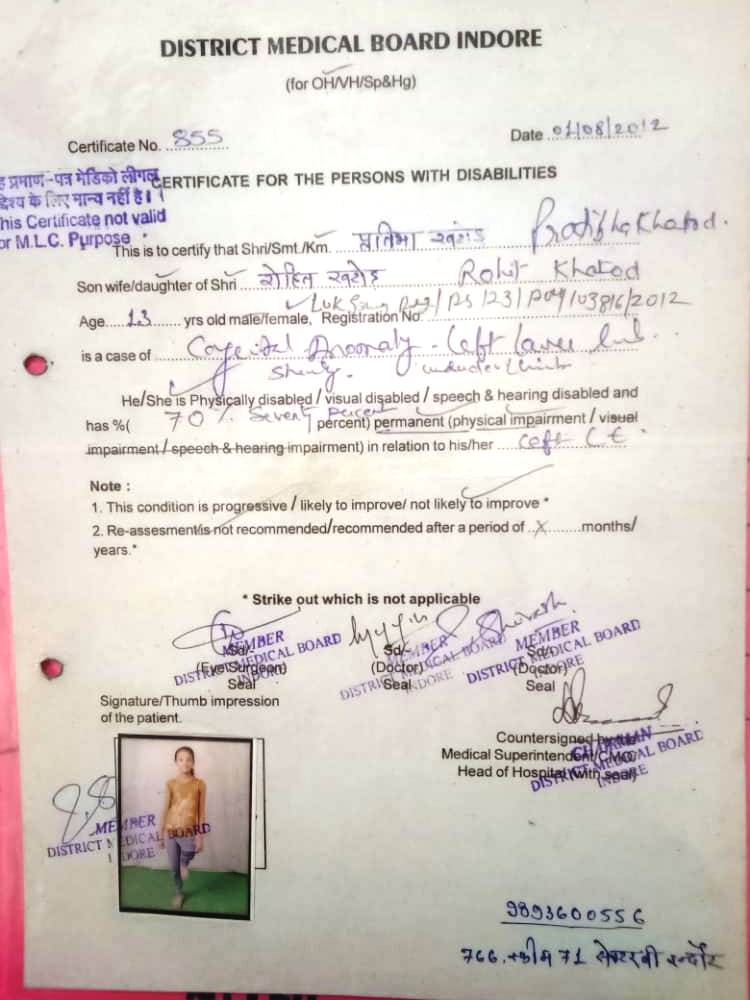 DISTRICT MEDICAL BOARD INDORE
(for OH/VH/Sp&Hg)
Certificate No. 855
Date 01/08/2012
ह प्रमाण-पत्र मेडिको लीगल
द्देश्य के लिए मान्य नहीं है।
his Certificate not valid
or M.L.C. Purpose
CERTIFICATE FOR THE PERSONS WITH DISABILITIES
This is to certify that Shri/Smt./Km. Pratibha Khatod.
Son wife/daughter of Shri रोहित खटोड़ Rohit Khatod
Age 13 yrs old male/female, Registration No.
is a case of Anomaly - Left
He/She is Physically disabled / visual disabled / speech & hearing disabled and
has %( 70% Seventy percent percent) permanent (physical impairment / visual
impairment / speech & hearing impairment) in relation to his/her Left
Note :
1. This condition is progressive / likely to improve/ not likely to improve *
2. Re-assesment/is not recommended/recommended after a period of X months/
years.*
* Strike out which is not applicable
Sd/- Sd/- Sd/-
(Eye Surgeon) (Doctor) (Doctor)
Seal Seal Seal
MEMBER
DISTRICT MEDICAL BOARD
INDORE
MEMBER
DISTRICT MEDICAL BOARD
INDORE
MEMBER
DISTRICT MEDICAL BOARD
INDORE
Signature/Thumb impression
of the patient.
Countersigned by the
Medical Superintendent/CMO
Head of Hospital (with seal)
CHAIRMAN
DISTRICT MEDICAL BOARD
INDORE
MEMBER
DISTRICT MEDICAL BOARD
INDORE
9893600556
766, स्कीम 71 सेक्टर बी इन्दौर